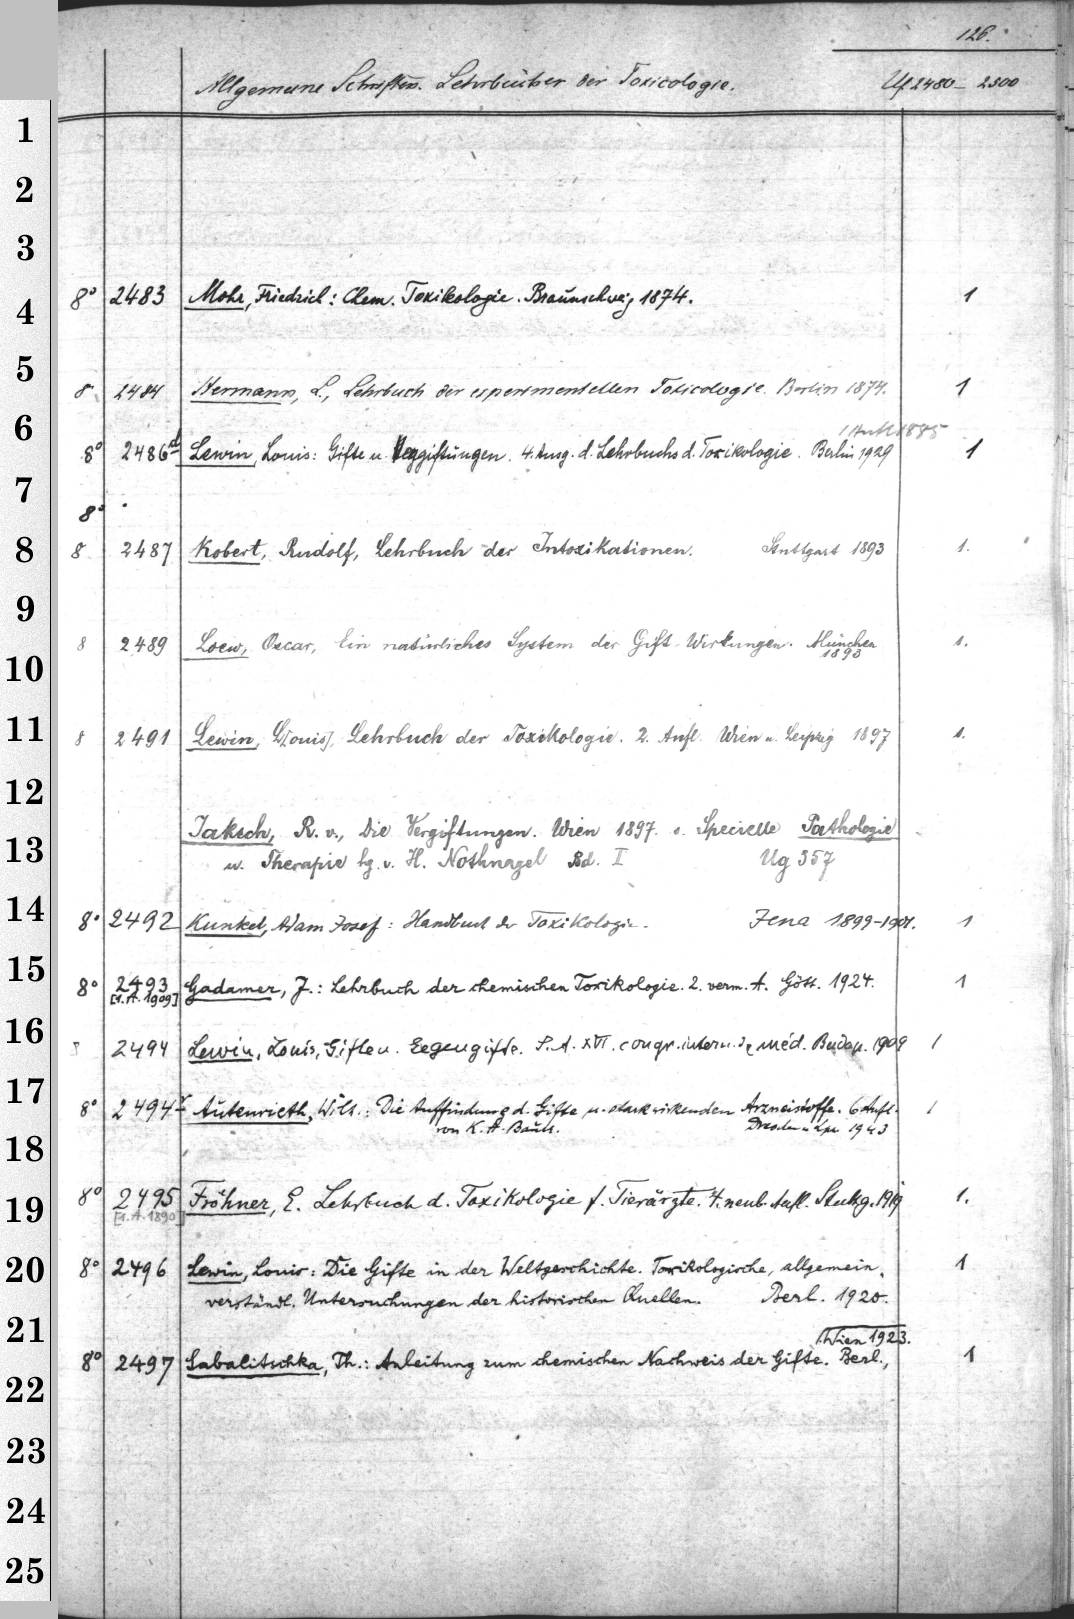 126.
Allgemeine Schriften. Lehrbücher der Toxicologie. Uf 2480-2500
1
2
3
8° 2483 Mohr, Friedrich: Chem. Toxikologie. Braunschweig 1874. 1
4
5
8 2484 Hermann, L., Lehrbuch der experimentellen Toxicologie. Berlin 1874. 1
6
1 Aufl 1885
8° 2486d Lewin, Louis: Gifte u. Vergiftungen. 4. Ausg. d. Lehrbuchs d. Toxikologie. Berlin 1929 1
7
8°
8 8 2487 Kobert, Rudolf, Lehrbuch der Intoxikationen. Stuttgart 1893 1.
9
8 2489 Loew, Oscar, Ein natürliches System der Gift-Wirkungen. München 1.
1893
10
11 8 2491 Lewin, L[ouis], Lehrbuch der Toxikologie. 2. Aufl. Wien u. Leipzig 1897 1.
12
Jaksch, R. v., Die Vergiftungen. Wien 1897. s. Specielle Pathologie
13 u. Therapie hg. v. H. Nothnagel Bd. I Ug 357
14 8° 2492 Kunkel, Adam Josef: Handbuch der Toxikologie. Jena 1899-1901. 1
15
8° 2493 Gadamer, J.: Lehrbuch der chemischen Toxikologie. 2. verm. A. Gött. 1924. 1
[1. A. 1909]
16
2494 Lewin, Louis, Gifte u. Gegengifte. S.A. XVI. congr. intern. de méd. Budap. 1909 1
17
8° 2494r Autenrieth, Wilh.: Die Auffindung d. Gifte u. stark wirkenden Arzneistoffe. 6 Aufl. 1
von K. H. Bauer. Dresden u. Lpz. 1943
18
8° 2495 Fröhner, E. Lehrbuch d. Toxikologie f. Tierärzte. 4. neub. Aufl. Stuttg. 1919 1.
[1. A. 1890]
19
20 8° 2496 Lewin, Louis: Die Gifte in der Weltgeschichte. Toxikologische, allgemein 1
verständl. Untersuchungen der historischen Quellen. Berl. 1920.
21
Wien 1923.
8° 2497 Sabalitschka, Th.: Anleitung zum chemischen Nachweis der Gifte. Berl., 1
22
23
24
25